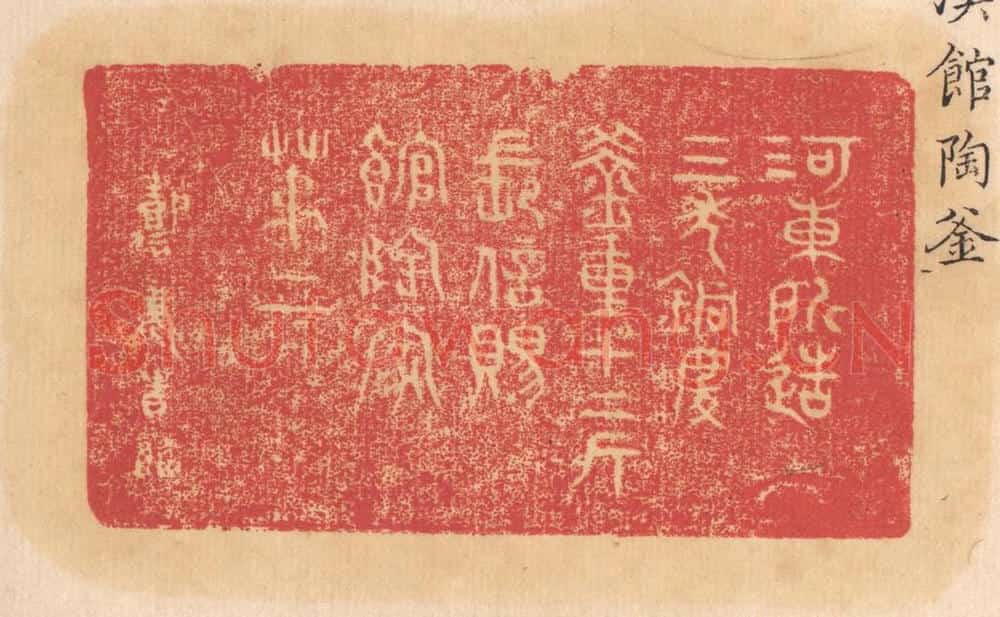 漢館陶釜
河東所造
三斗銅
釜重十二斤
長信賜
館陶家
第二
吉